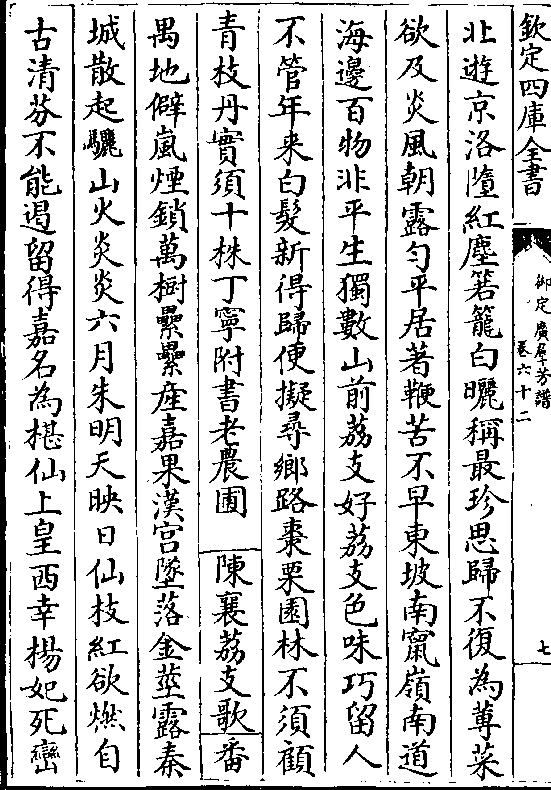 欽定四庫全書
御定廣羣芳譜
卷六十二
七
北遊京洛墮紅塵箬籠白曬稱最珍思歸不復為蓴菜
欲及炎風朝露勻平居著鞭苦不早東坡南竄嶺南道
海邊百物非平生獨數山前荔支好荔支色味巧留人
不管年来白髮新得歸便擬尋鄉路棗栗園林不須顧
青枝丹實須十株丁寧附書老農圃　陳襄荔支歌　番
禺地僻嵐煙鎖萬樹纍纍産嘉果漢宫墜落金莖露秦
城散起驪山火炎炎六月朱明天映日仙枝紅欲燃自
古清芬不能遏留得嘉名為椹仙上皇西幸楊妃死巒